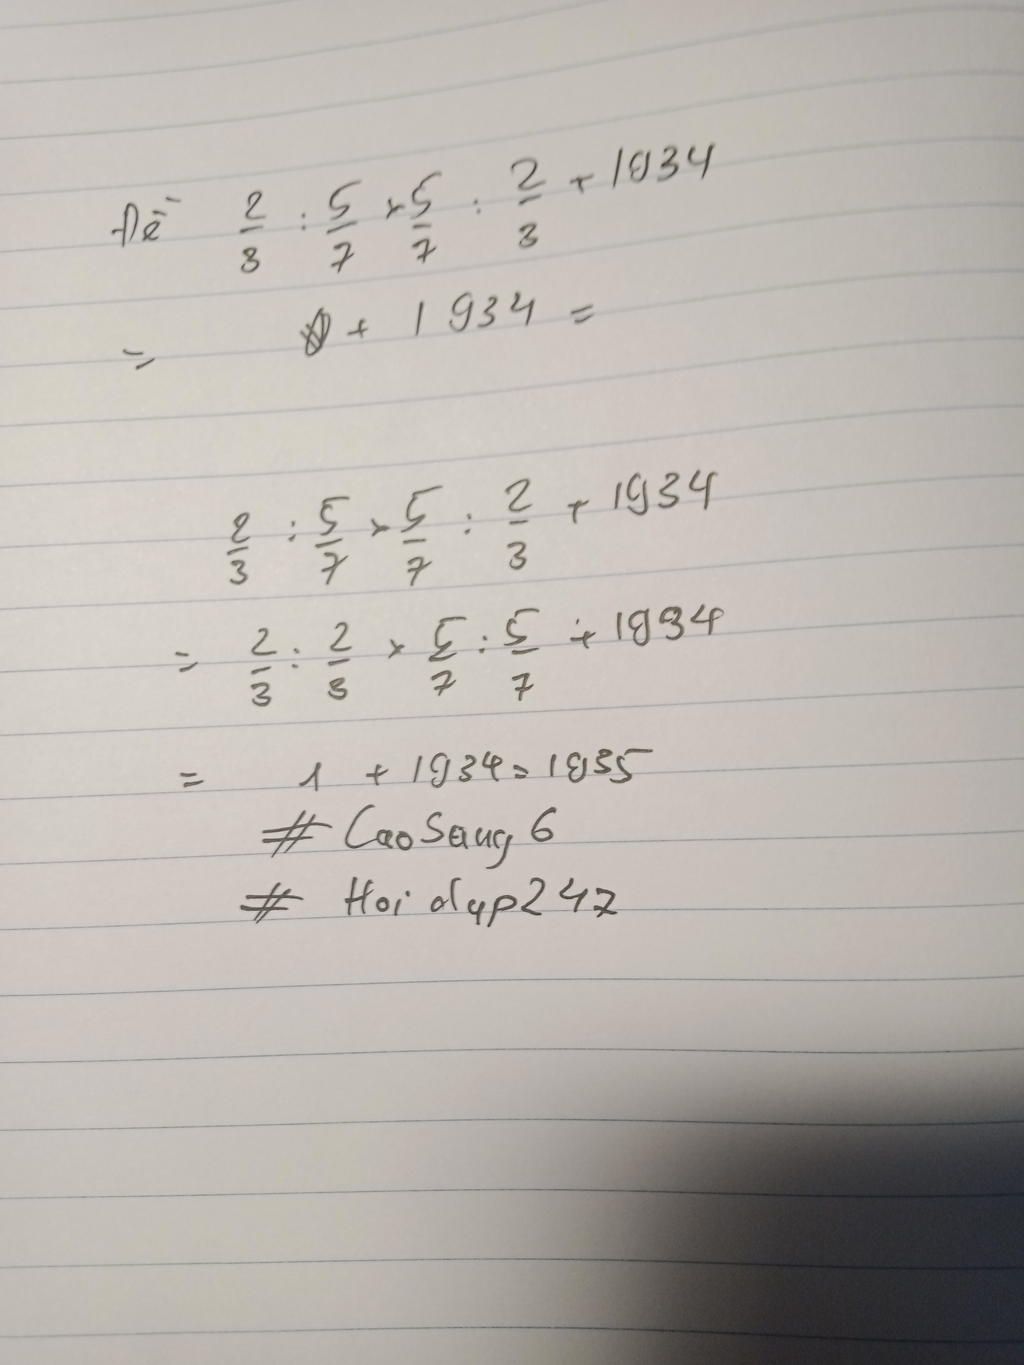 Đề 2/3 : 5/7 x 5/7 : 2/3 + 1934
= + 1934 =
2/3 : 5/7 x 5/7 : 2/3 + 1934
= 2/3 : 2/3 x 5/7 : 5/7 + 1934
= 1 + 1934 = 1935
# CaoSang6
# Hoidap247